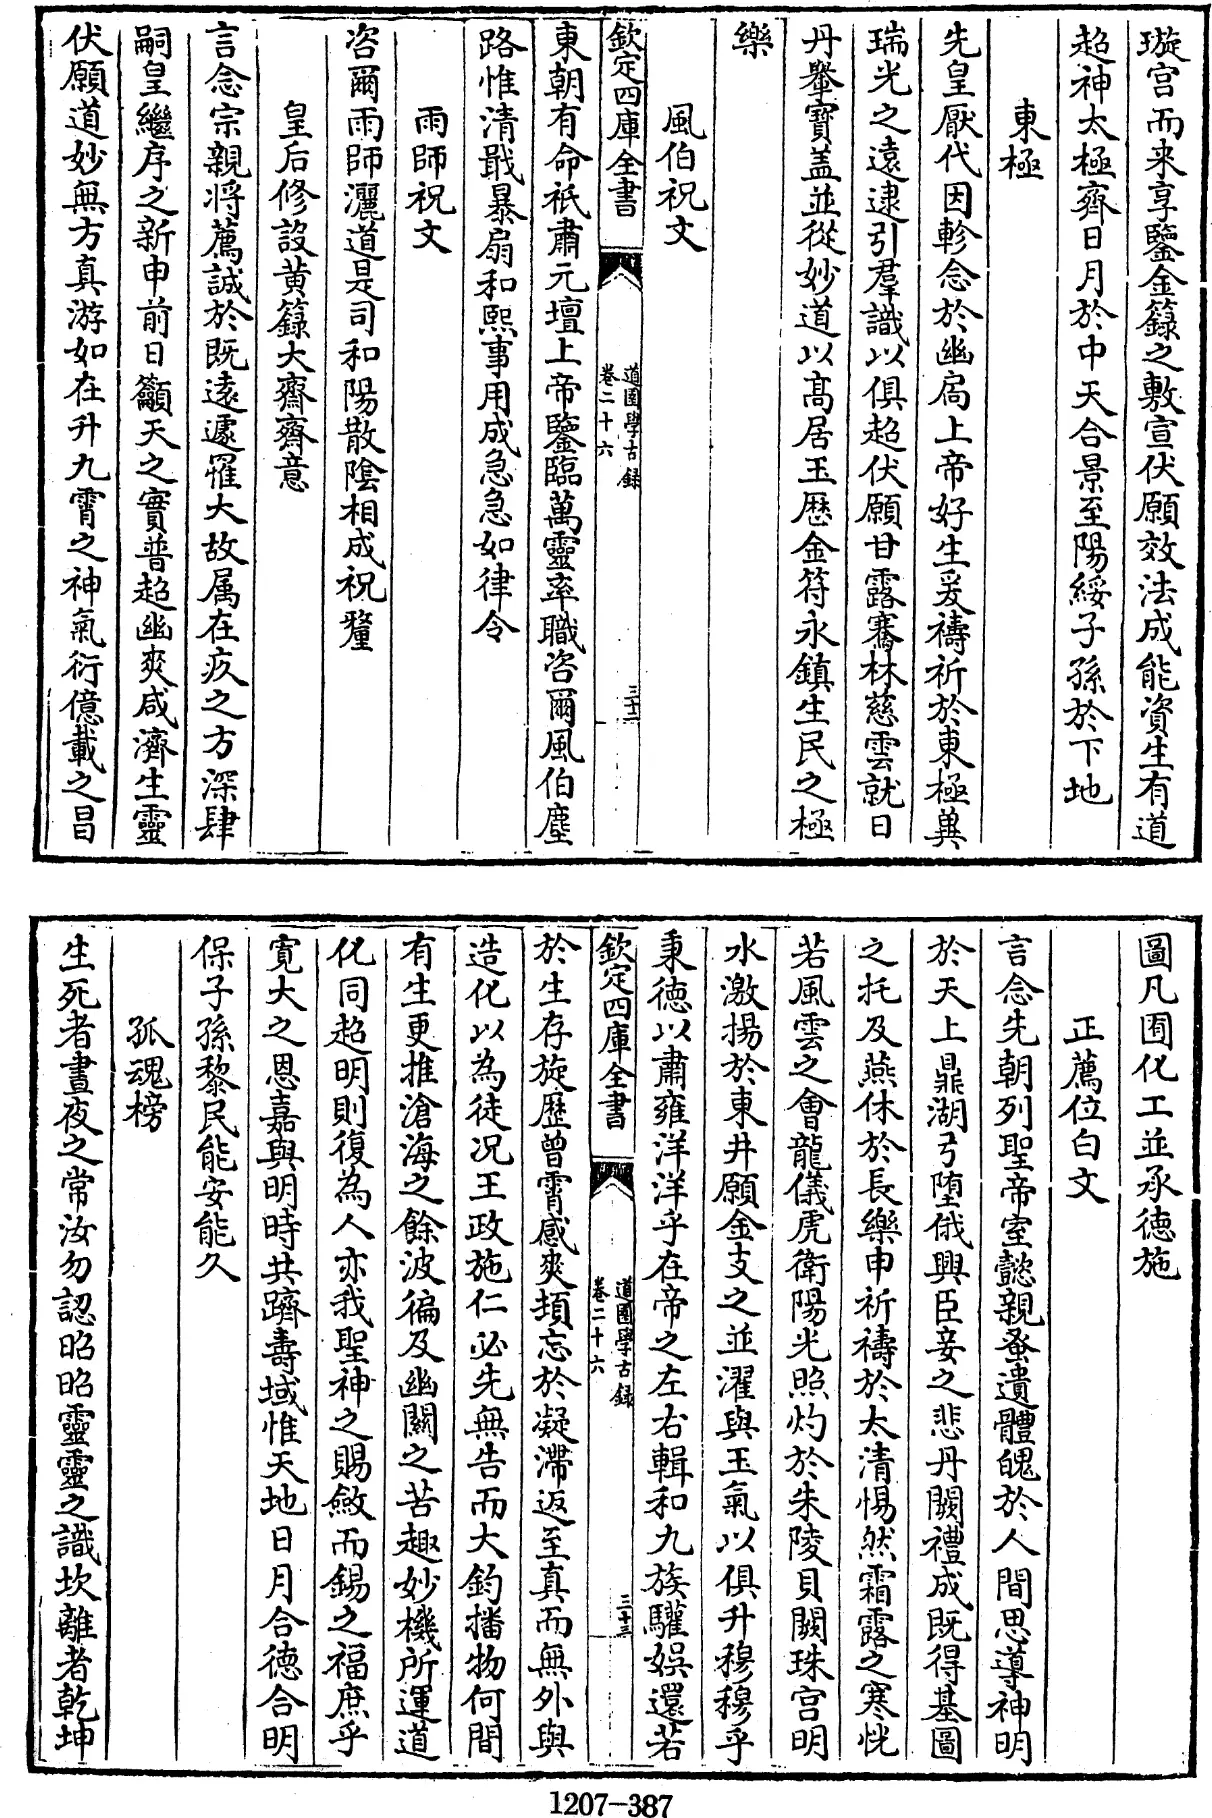 璇宫而来享鑒金籙之敷宣伏願效法成能資生有道
超神太極齊日月於中天合景至陽綏子孫於下地
東極
先皇厭代因軫念於幽扃上帝好生爰禱祈於東極冀
瑞光之遠逮引羣識以俱超伏願甘露騫林慈雲就日
丹轝寳盖並從妙道以髙居玉歴金符永鎮生民之極
樂
風伯祝文
欽定四庫全書
道園學古録
卷二十六
三十二
東朝有命祇肅元壇上帝鑒臨萬靈率職咨爾風伯塵
路惟清戢暴扇和熙事用成急急如律令
雨師祝文
咨爾雨師灑道是司和陽散陰相成祝釐
皇后修設黄籙大齋齋意
言念宗親將薦誠於既逺遽罹大故属在疚之方深肆
嗣皇繼序之新申前日籲天之實普超幽爽咸濟生靈
伏願道妙無方真游如在升九霄之神氣衍億載之昌
圖凡囿化工並承徳施
正薦位白文
言念先朝列聖帝室懿親蚤遺體魄於人間思導神明
於天上鼎湖弓堕俄興臣妾之悲丹闕禮成既得基圖
之托及燕休於長樂申祈禱於太清惕然霜露之寒恍
若風雲之會龍儀虎衛陽光照灼於朱陵貝闕珠宫明
水激揚於東井願金支之並濯與玉氣以俱升穆穆乎
秉徳以肅雍洋洋乎在帝之左右輯和九族驩娱還若
欽定四庫全書
道園學古録
卷二十六
三十三
於生存旋歴曾霄感爽頓忘於凝滯返至真而無外與
造化以為徒况王政施仁必先無告而大鈞播物何間
有生更推滄海之餘波徧及幽關之苦趣妙機所運道
化同超明則復為人亦我聖神之賜斂而錫之福庶乎
寛大之恩嘉與明時共躋壽域惟天地日月合徳合明
保子孫黎民能安能久
孤魂榜
生死者晝夜之常汝勿認昭昭靈靈之識坎離者乾坤
1207-387